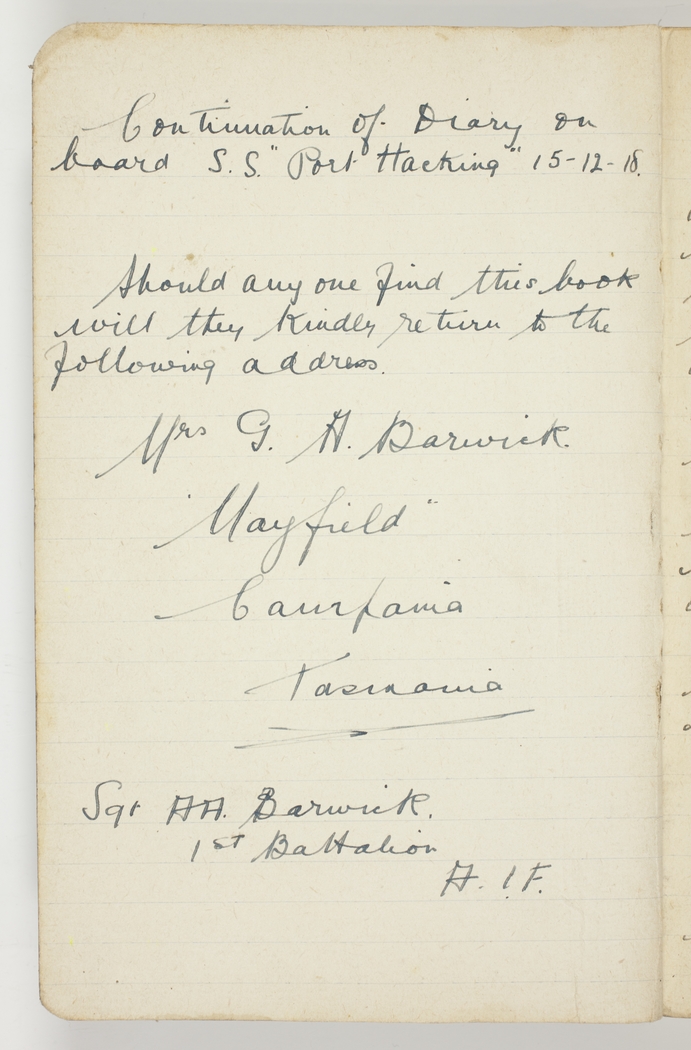 Continuation of Diary on
board S.S. "Port Hacking" 15-12-18.
Should any one find this book
will they kindly return to the
following address.
Mrs G. H. Barwick.
"Mayfield"
Campania
Tasmania
Sgt A A. Barwick.
1st Battalion
A. I. F.